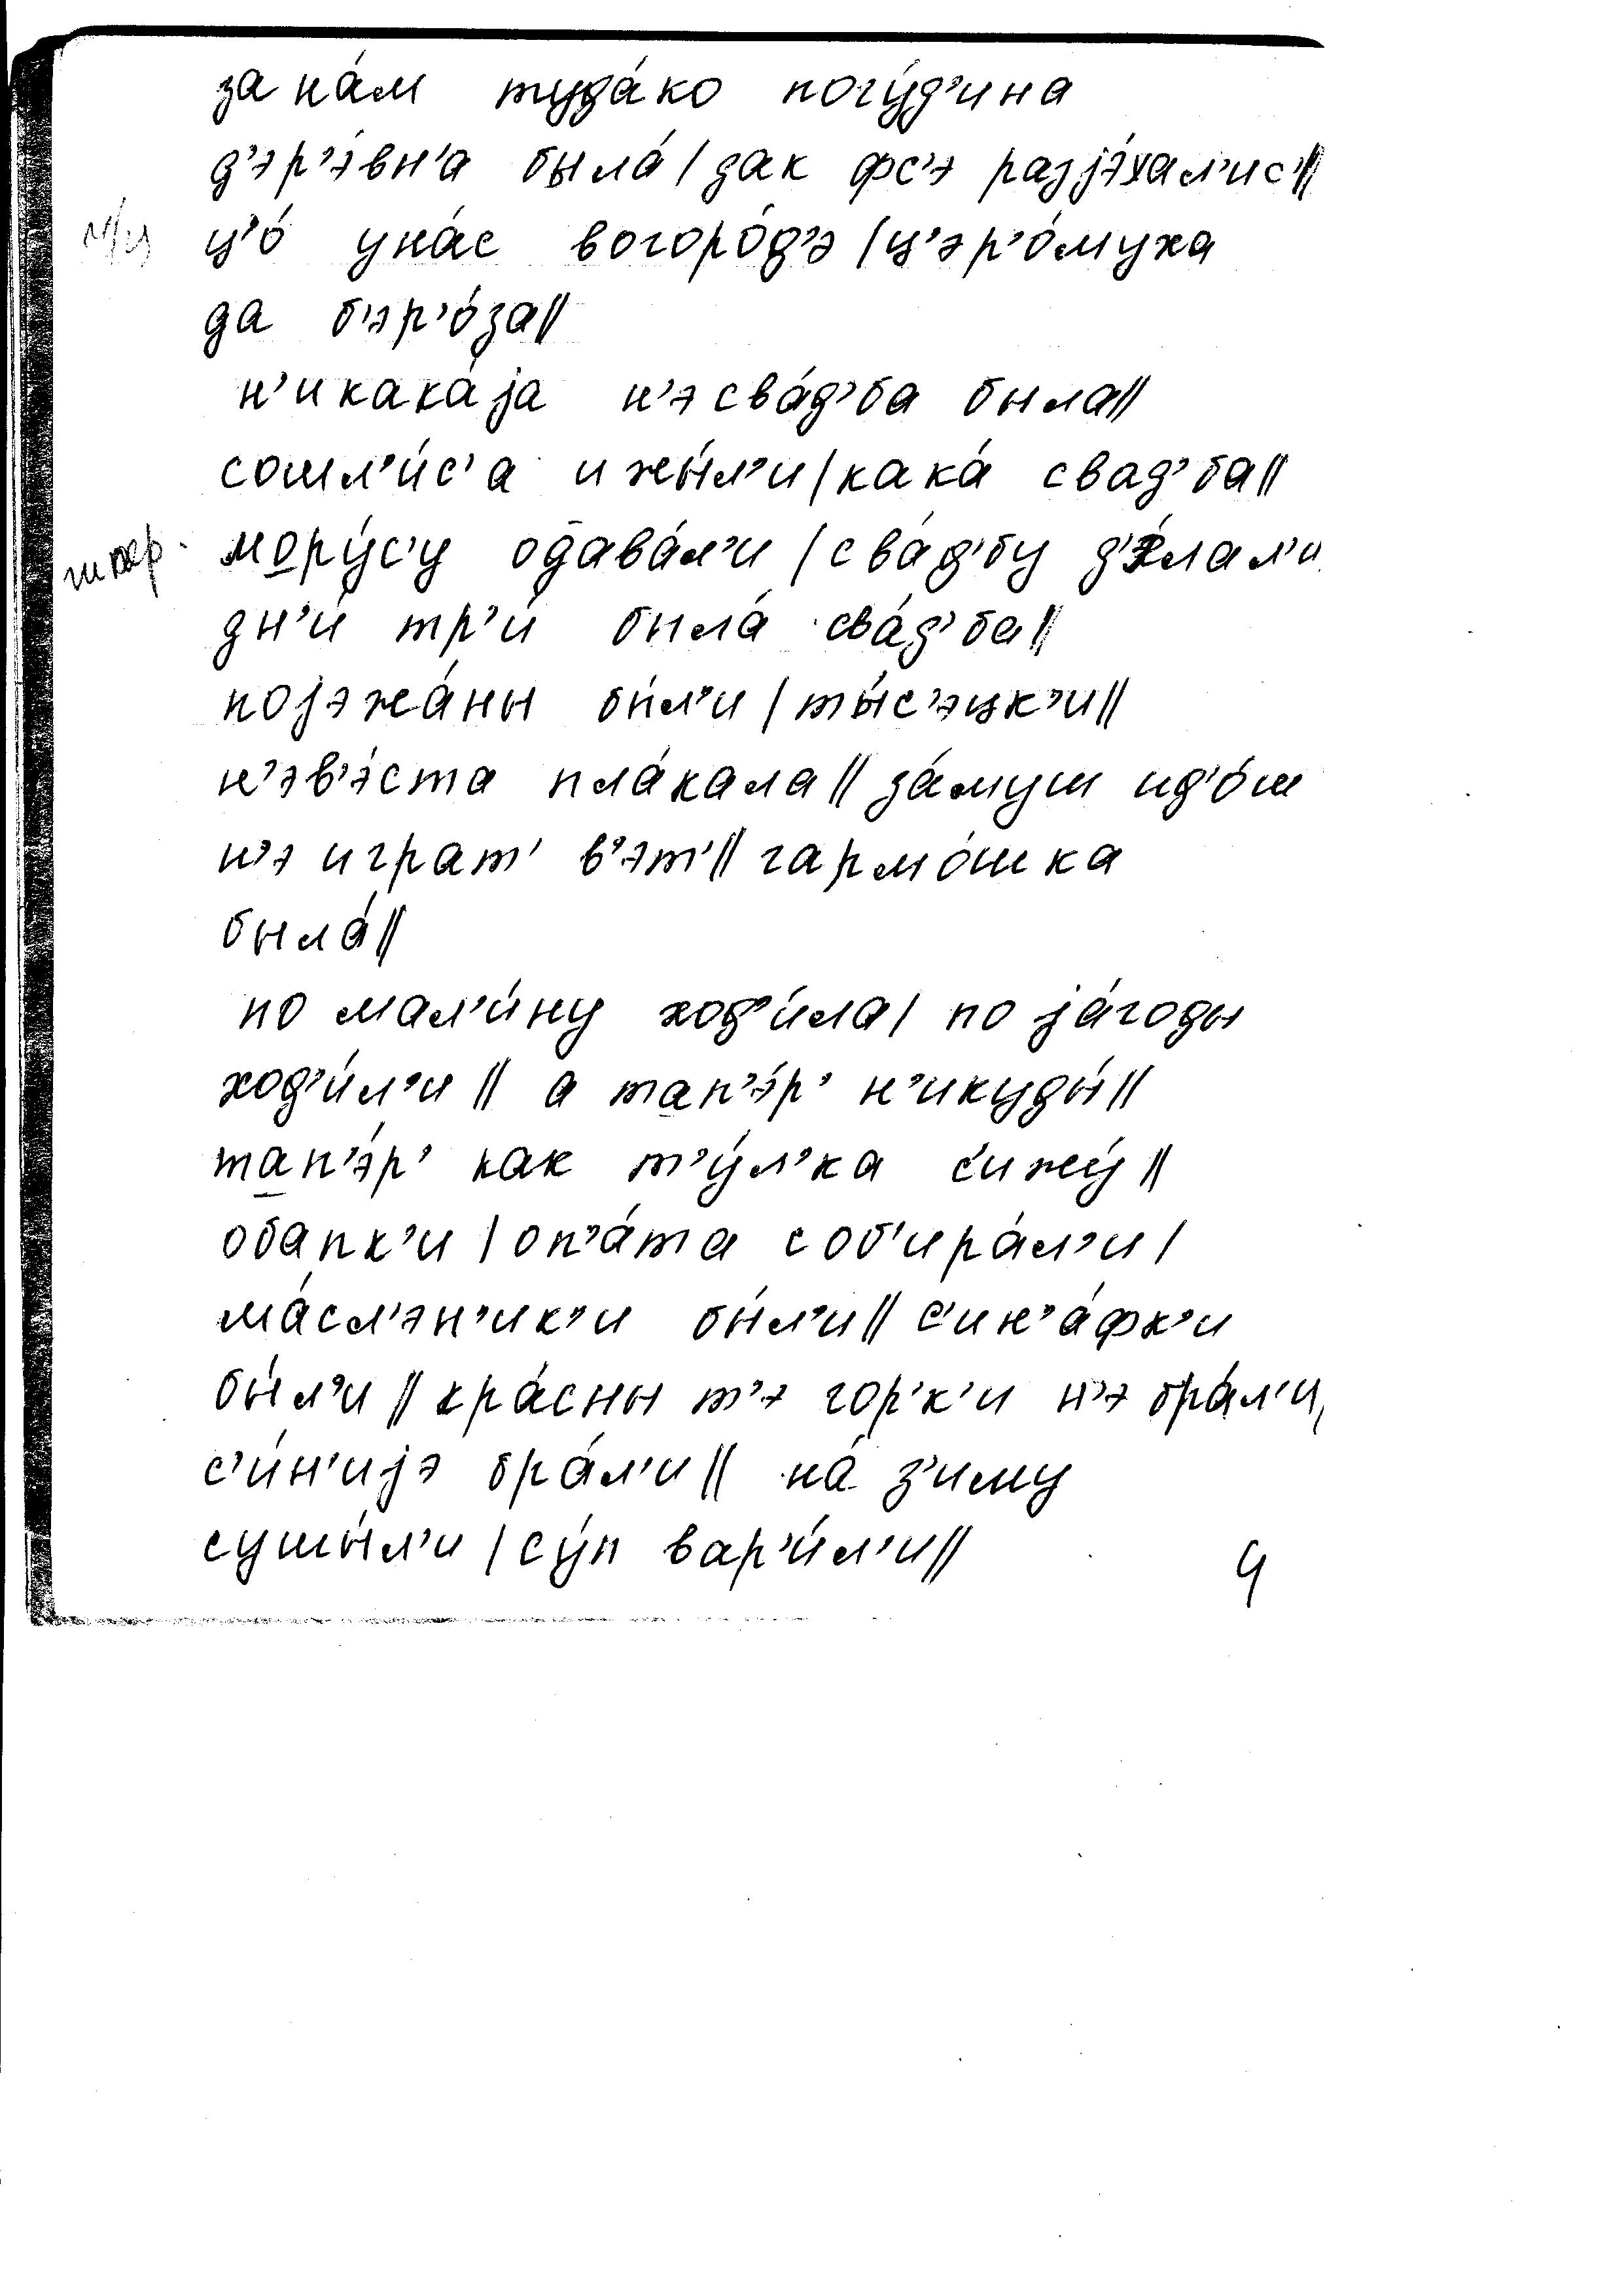 за на́м туда́ко погу́д'ина
д'эр'э́вн'а была́ / дак фс'э разjэ́хал'ис' //
ц'о́ уна́с вогоро́д'э / ц'эр'о́муха
да б'эр'о́за //
н'икака́jа н'э сва́д'ба была //
сошл'и́с'а и жы́л'и / кака́ свад'ба //
мору́с'у одава́л'и / сва́д'бу д'э́лал'и
дн'и́ тр'и́ была́ сва́д'ба //
поjэжа́ны бы́л'и / ты́с'эцк'и //
н'эв'э́ста пла́кала // за́муш ид'о́ш
н'э играт' в'эт' // гармо́шка
была́ //
по мал'и́ну ход'и́ла / по jа́годы
ход'и́л'и // а тап'э́р' н'икуды́ //
тап'э́р' как т'у́л'ка с'ижу́ //
обапк'и / оп'а́та соб'ира́л'и /
ма́сл'эн'ик'и бы́л'и // с'ин'а́фк'и
бы́л'и // кра́сны т'э гор'к'и н'э бра́л'и,
с'и́н'иjэ бра́л'и // на́ з'иму
сушы́л'и / су́п вар'и́л'и //
4